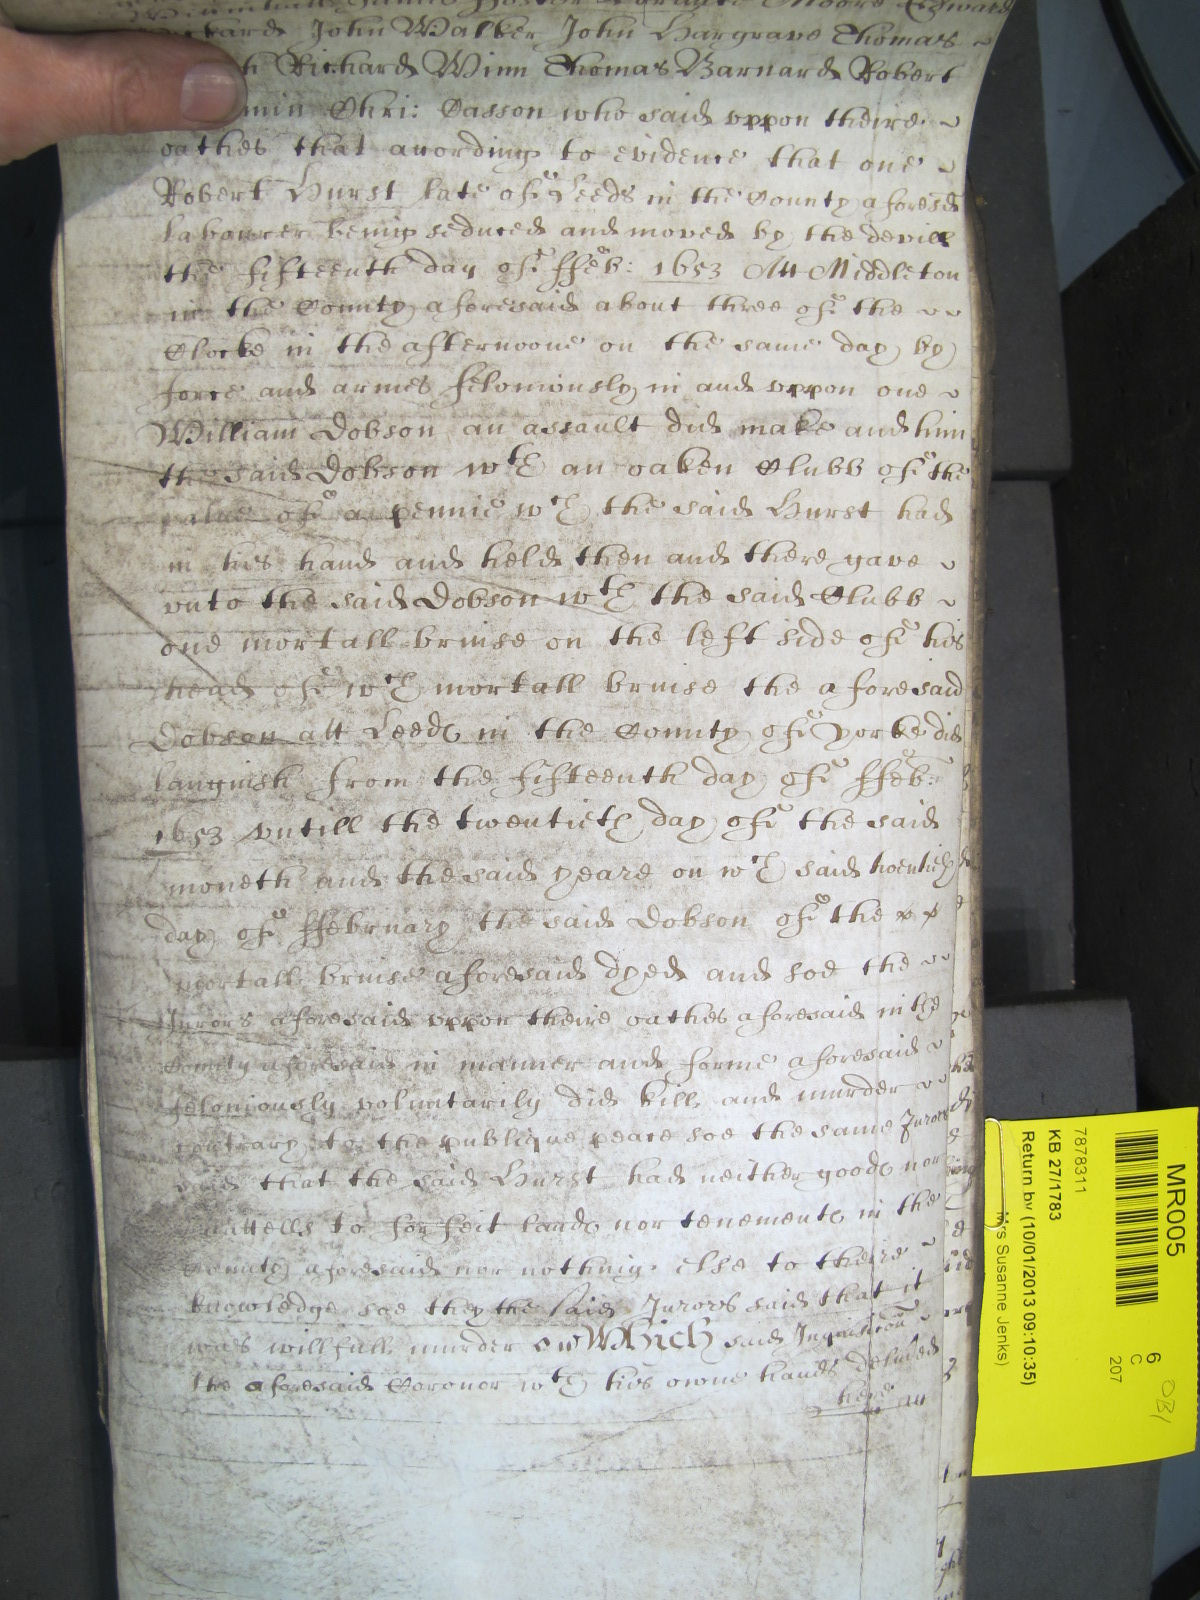 John Walker John Hargrave Thomas
Richard Winn Thomas Barnard Robert
Chri: Casson who said uppon theire
oathes that acording to evidence that one
Robert Hurst late of Leeds in the County aforesd
labourer being seduced and moved by the devill
the fifteenth day of ffeb: 1653 Att Middleton
in the County aforesaid about three of the
Clocke in the afternoone on the same day by
force and armes feloniously in and uppon one
William Dobson an assault did make and him
the said Dobson wth an oaken Clubb of the
value of a pennie wch the said Hurst had
in his hand and held then and there gave
unto the said Dobson wth the said Clubb
one mortall bruise on the left side of his
head of wch mortall bruise the aforesaid
Dobson att Leeds in the County of Yorke did
languish from the fifteenth day of ffeb:
1653 untill the twentieth day of the said
moneth and the said yeare on wch said twentieth
day of ffebruary the said Dobson of the
mortall bruise aforesaid dyed and soe the
Jurors aforesaid uppon theire oathes aforesaid in the
County aforesaid in manner and forme aforesaid
feloniously voluntarily did kill and murder
contrary to the publique peace soe the same Jurors
said that the said Hurst had neither goods nor
chattells to forfeit lands nor tenements in the
County aforesaid nor nothing else to theire
knowledge soe they the said Jurors said that it
was willfull murder Which said Inquisicon
the aforesaid Coronor wth his owne hands delived
here
MR005
6
C
207
7878311
KB 27/1783
Return by (10/01/2013 09:10:35)
Mrs Susanne Jenks)